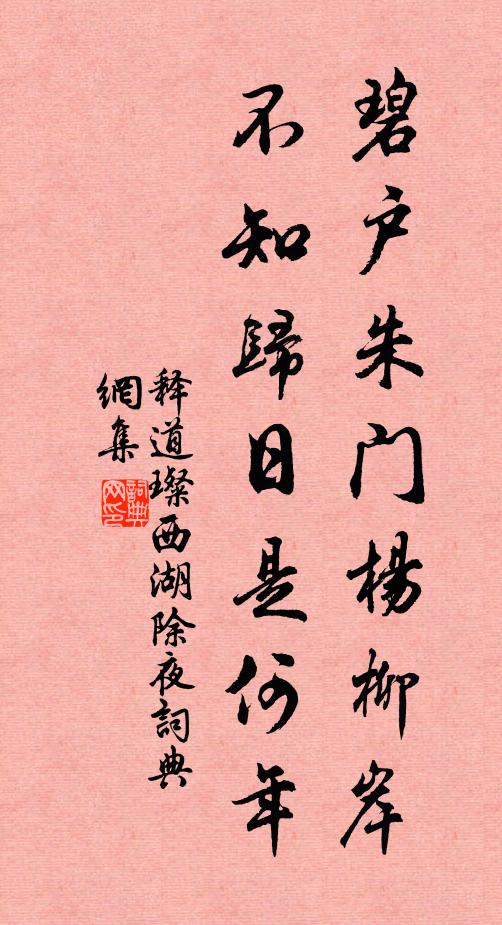 碧户朱门楊柳岸
不知歸日是何年
释道璨西湖除夜詞典
網集
詞典网印